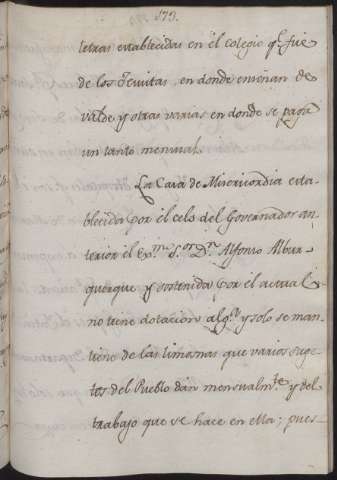 173.
letras establecidas en el Colegio q.e fue
de los Jesuitas, en donde enseñan de
valde y otras varias en donde se paga
un tanto mensual.
La Casa de Misericordia esta-
blecida por el celo del Governador an-
terior el Ex.mo S.or D.n Alfonso Albur-
querque y sostenida por el actual
no tiene dotacion alg.a y solo se man-
tiene de las limosnas que varios suge-
tos del Pueblo dan mensualm.te y del
trabajo que se hace en ella; pues